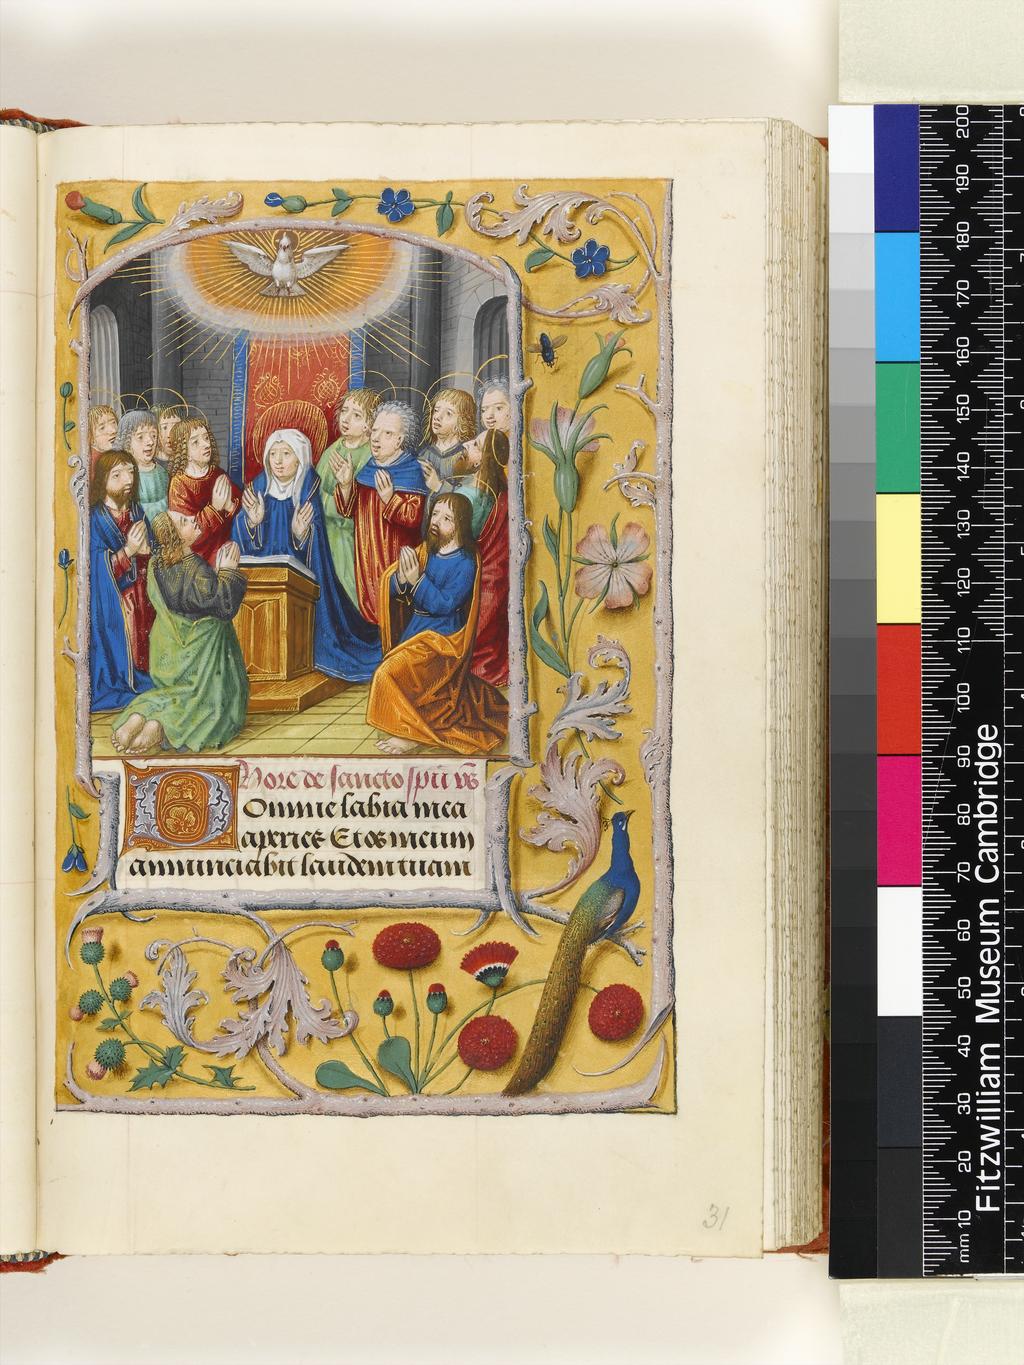 Hore de sancto spū vs
Domine labia mea
aperies Et os meum
annunciabit laudem tuam
31
Fitzwilliam Museum Cambridge
mm 10 20 30 40 50 60 70 80 90 100 110 120 130 140 150 160 170 180 190 200